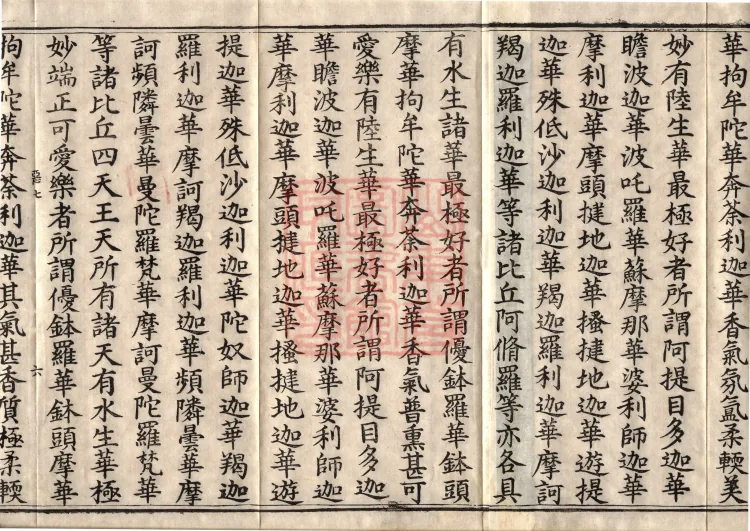 華拘牟陀華奔荼利迦華香氣氛氳柔輭美
妙有陸生華最極好者所謂阿提目多迦華
瞻波迦華波吒羅華蘇摩那華婆利師迦華
摩利迦華摩頭揵地迦華搔揵地迦華遊提
迦華殊低沙迦利迦華羯迦羅利迦華摩訶
羯迦羅利迦華等諸比丘阿脩羅等亦各具
有水生諸華最極好者所謂優鉢羅華鉢頭
摩華拘牟陀華奔荼利迦華香氣普熏甚可
愛樂有陸生華最極好者所謂阿提目多迦
華瞻波迦華波吒羅華蘇摩那華婆利師迦
華摩利迦華摩頭揵地迦華搔揵地迦華遊
提迦華殊低沙迦利迦華陀奴師迦華羯迦
羅利迦華摩訶羯迦羅利迦華頻隣曇華摩
訶頻隣曇華曼陀羅梵華摩訶曼陀羅梵華
等諸比丘四天王天所有諸天有水生華極
惡七
六
妙端正可愛樂者所謂優鉢羅華鉢頭摩華
拘牟陀華奔荼利迦華其氣甚香質極柔輭